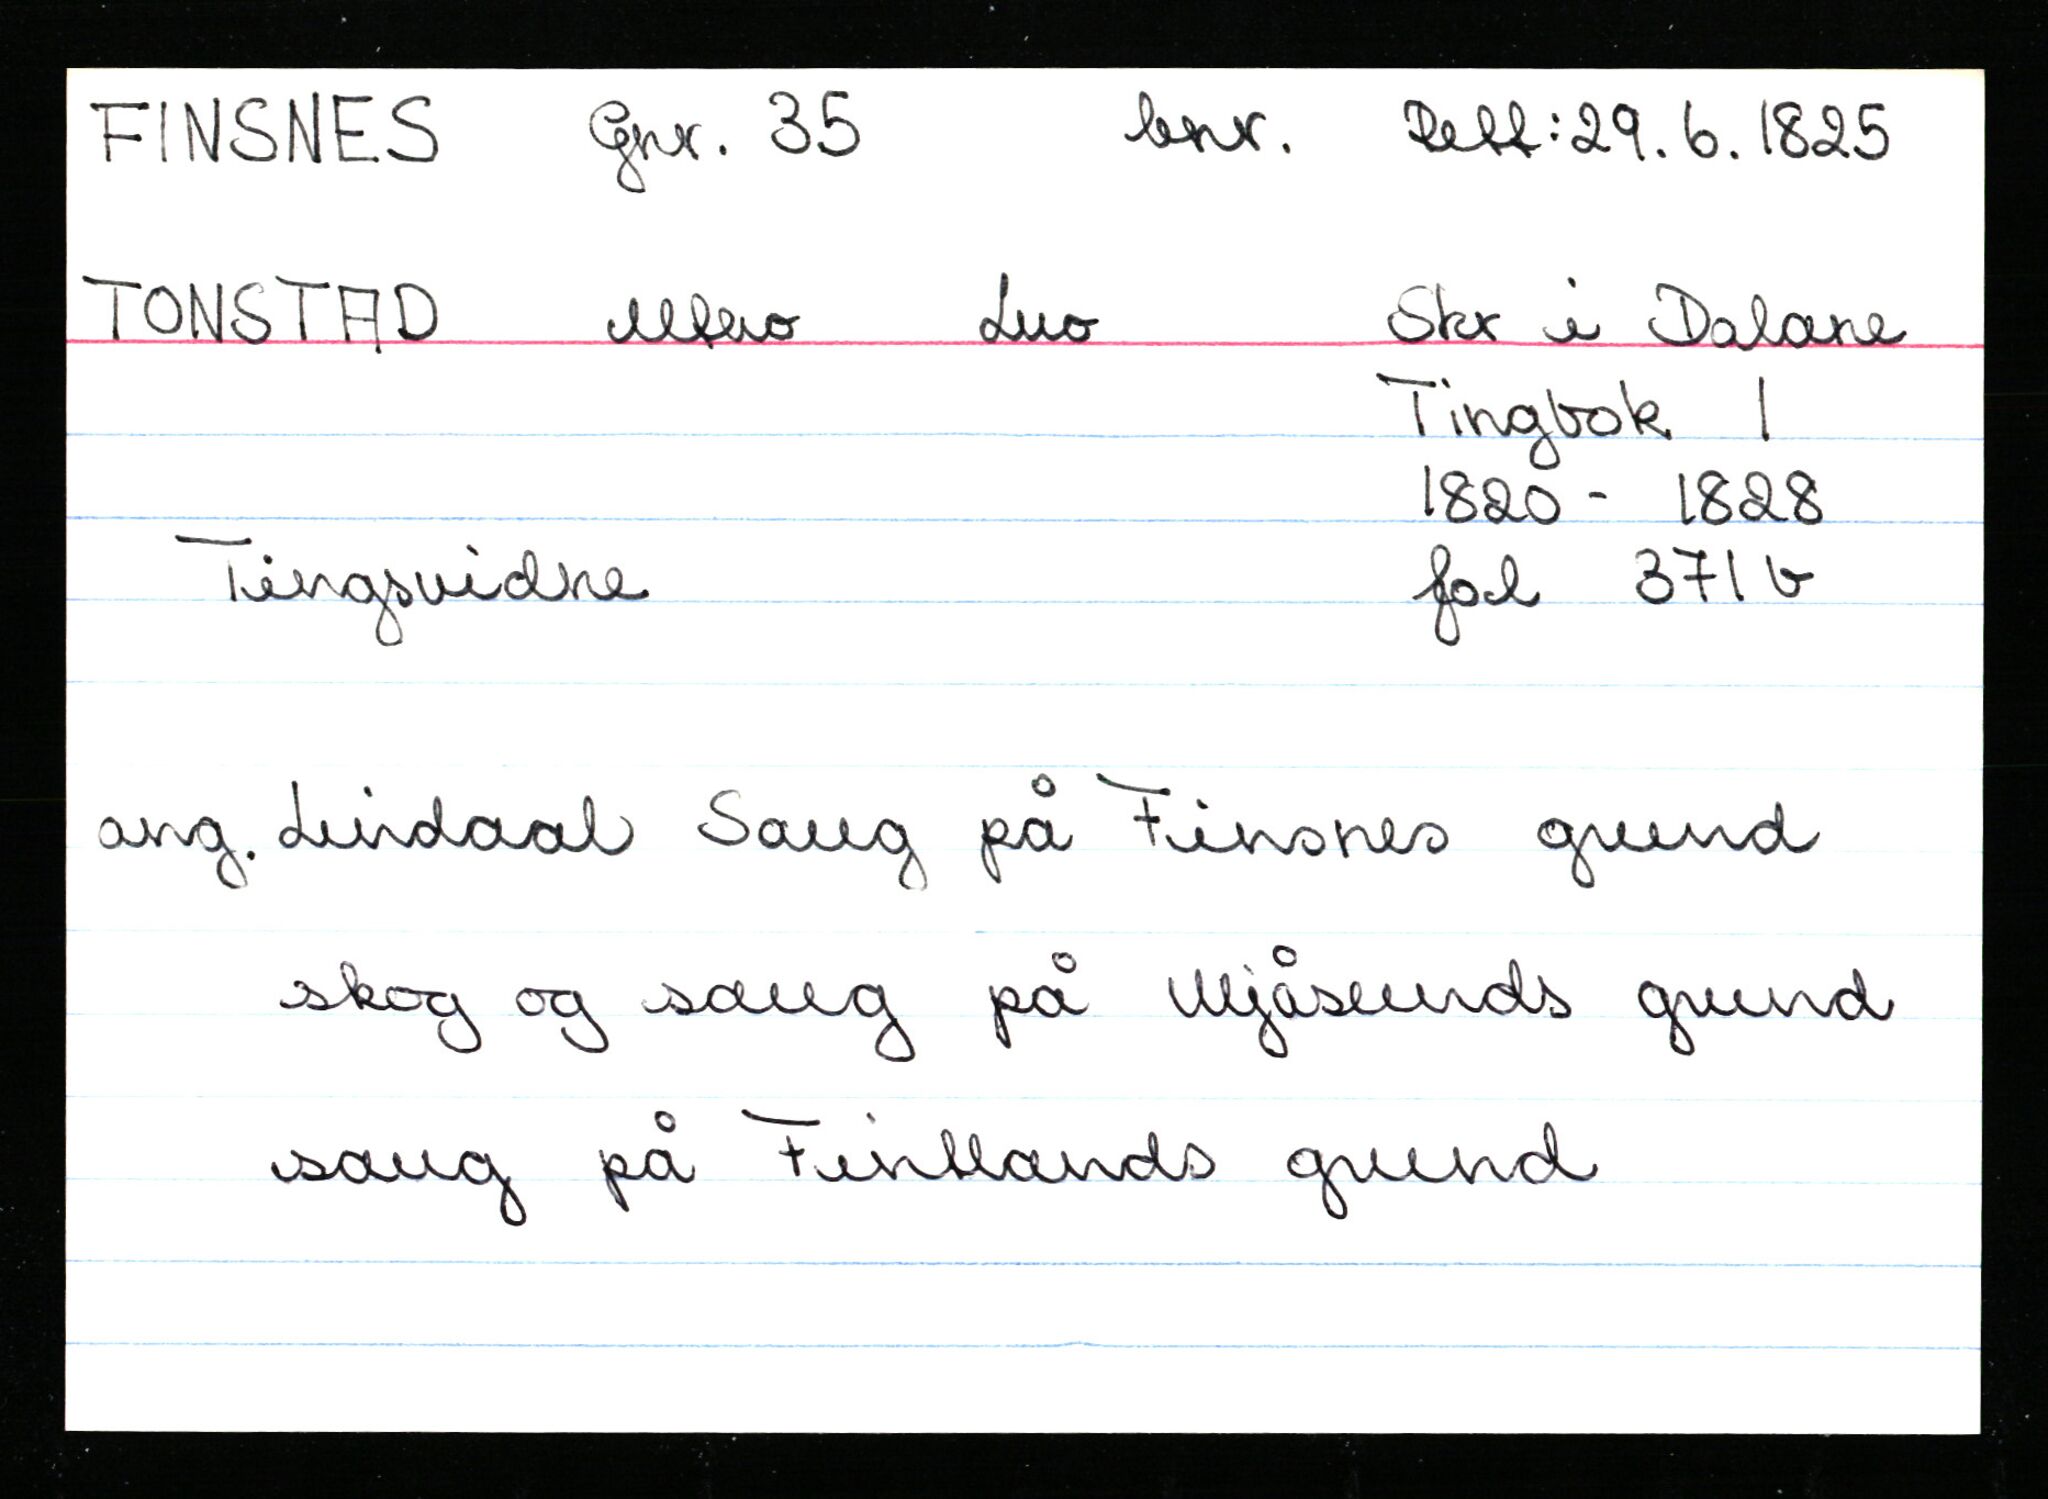 FINSNES Gnr. 35 bnr. Rett: 29.6.1825
TONSTAD Mtno Lno Skr i Dalane
Tingbok 1
1820 - 1828
Tingsvidne fol 371 b
ang. Lindaal Saug på Finsnes grund
skog og saug på Mjåsunds grund
saug på Fintlands grund